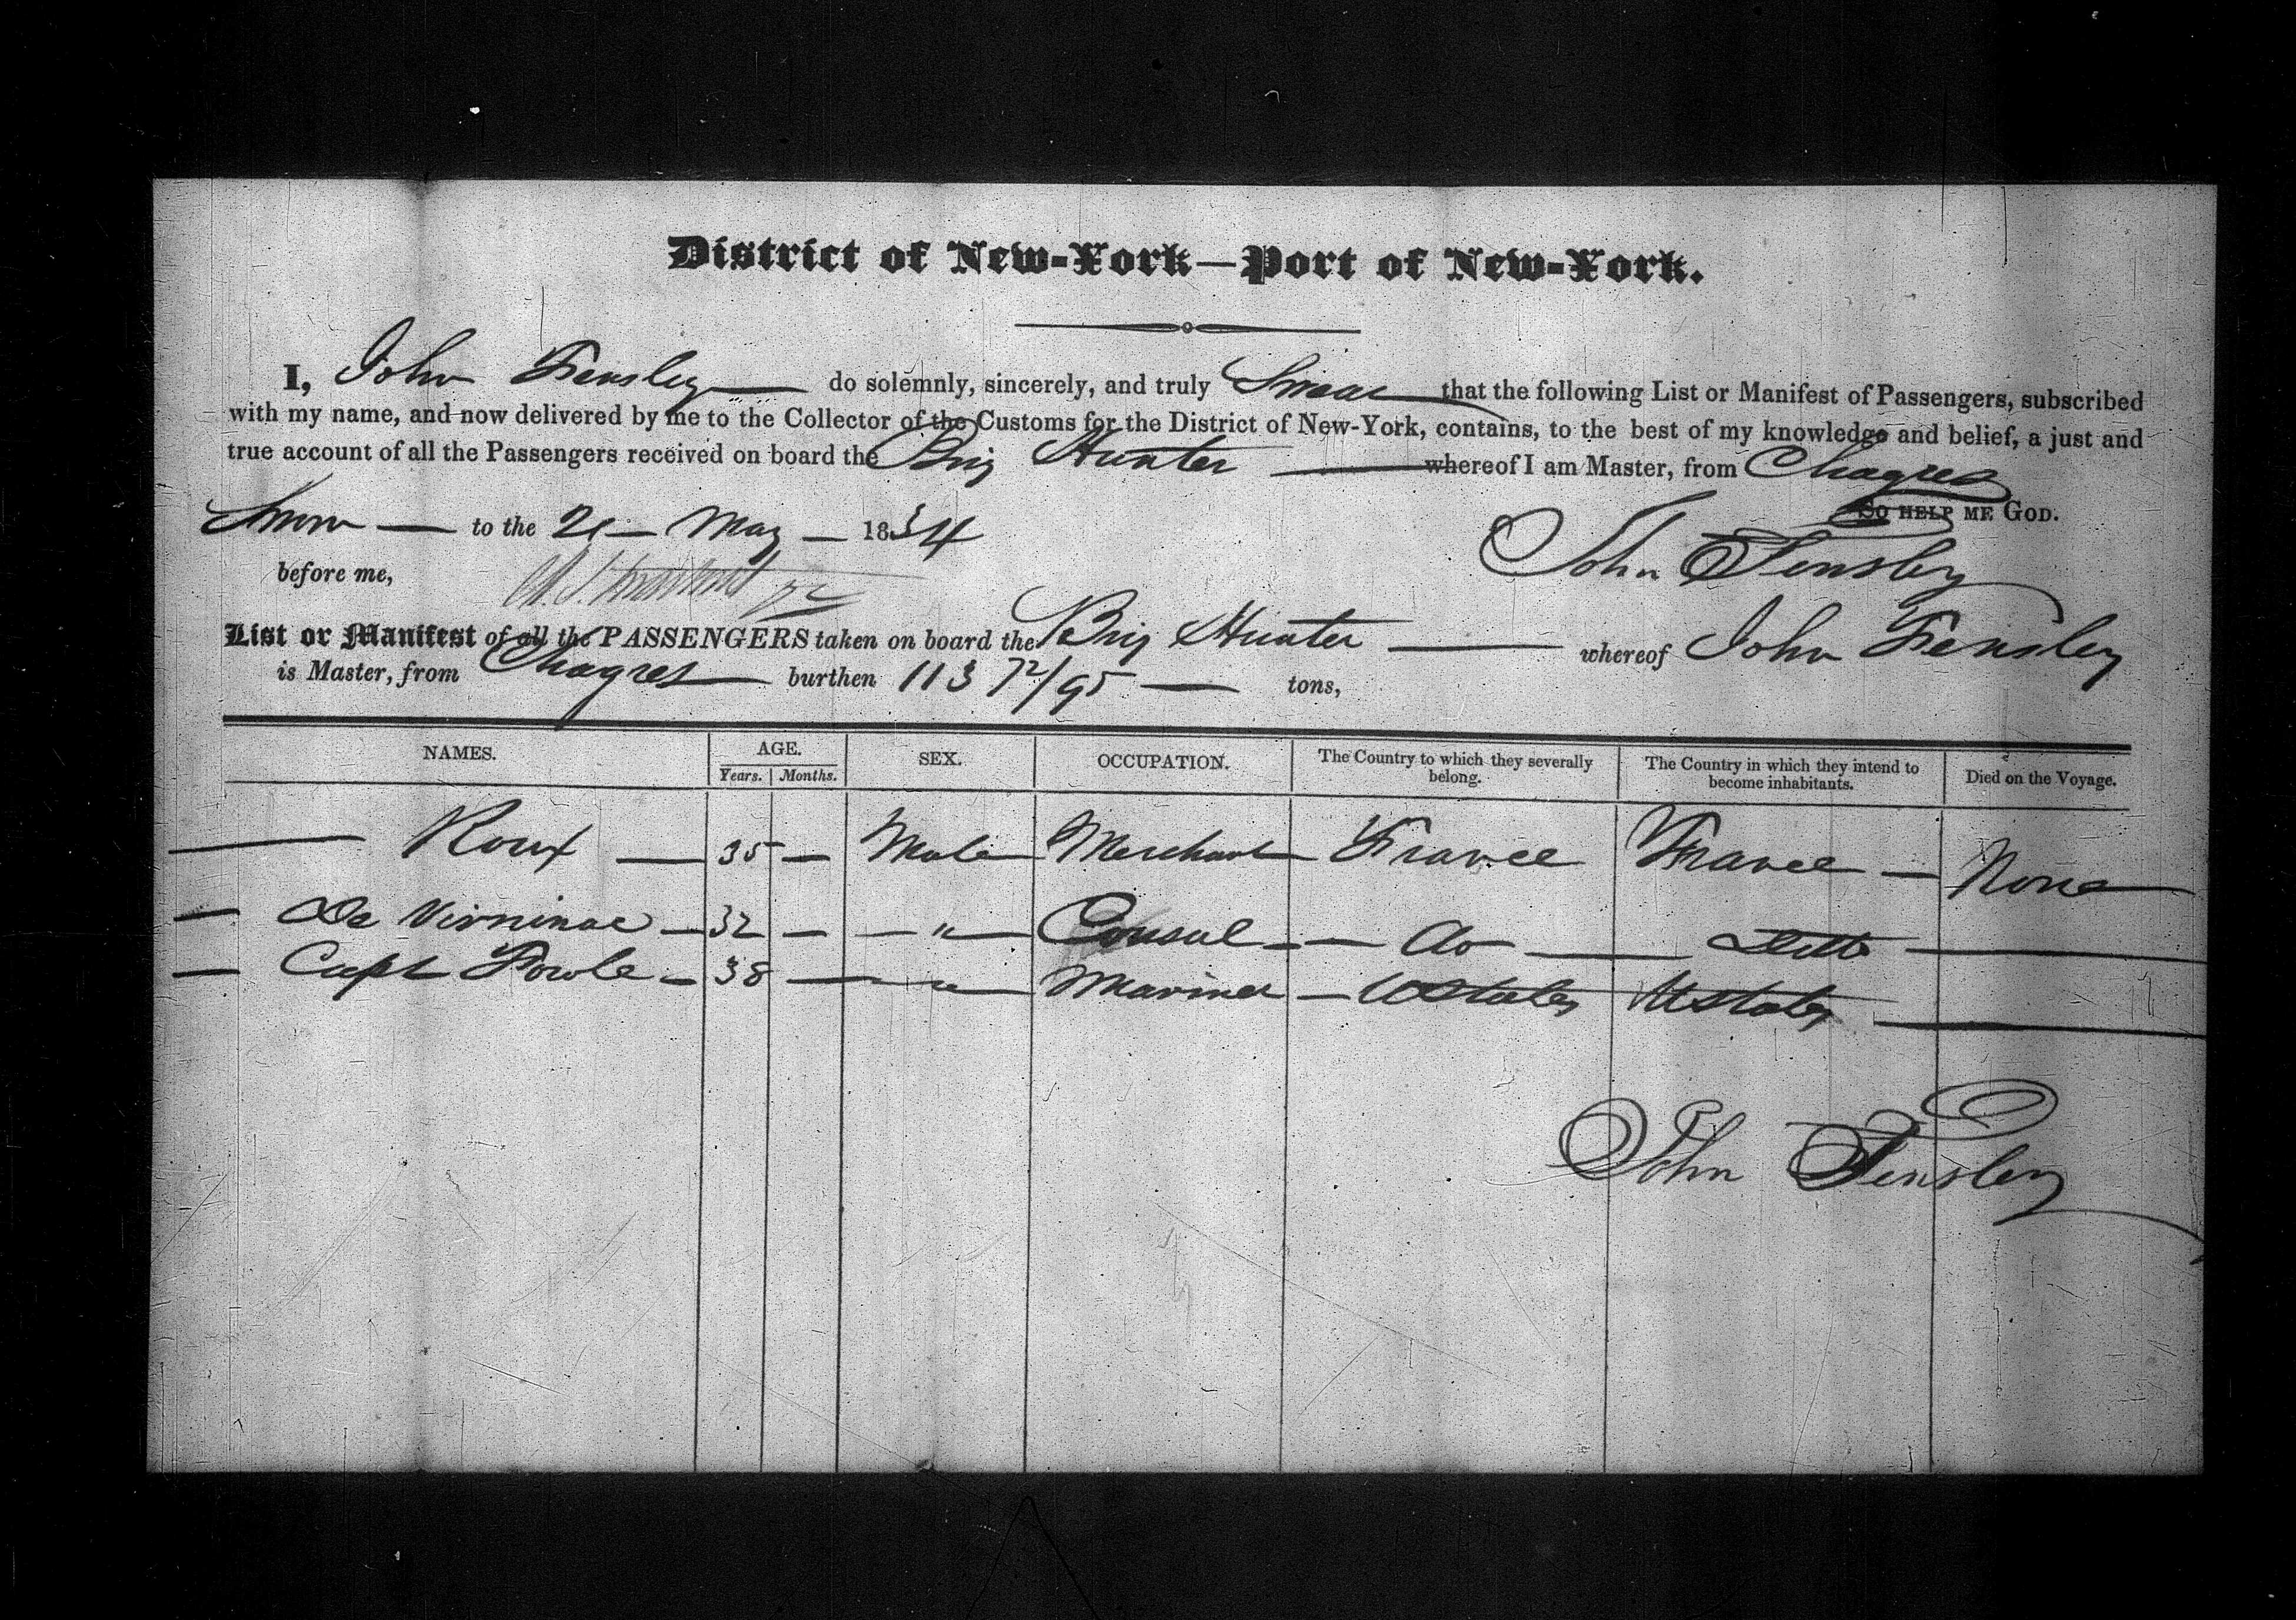 District of New-York—Port of New-York.
I, John Tensley do solemnly, sincerely, and truly Swear that the following List or Manifest of Passengers, subscribed
with my name, and now delivered by me to the Collector of the Customs for the District of New-York, contains, to the best of my knowledge and belief, a just and
true account of all the Passengers received on board the Brig Hunter whereof I am Master, from Chagres
So help me God.
Sworn to the 21 May 1834
John Tensley
before me,
List or Manifest of all the PASSENGERS taken on board the Brig Hunter whereof John Tensley
is Master, from Chagres burthen 113 72/95 tons,
NAMES. AGE. SEX. OCCUPATION. The Country to which they severally belong. The Country in which they intend to become inhabitants. Died on the Voyage.
Years. Months.
— Roux — 35 — Male Merchant France France — None
— De Virninac — 32 — — " — Consul — do — Ditto —
— Capt Powle — 38 — " — Mariner — UStates UStates —
John Tensley